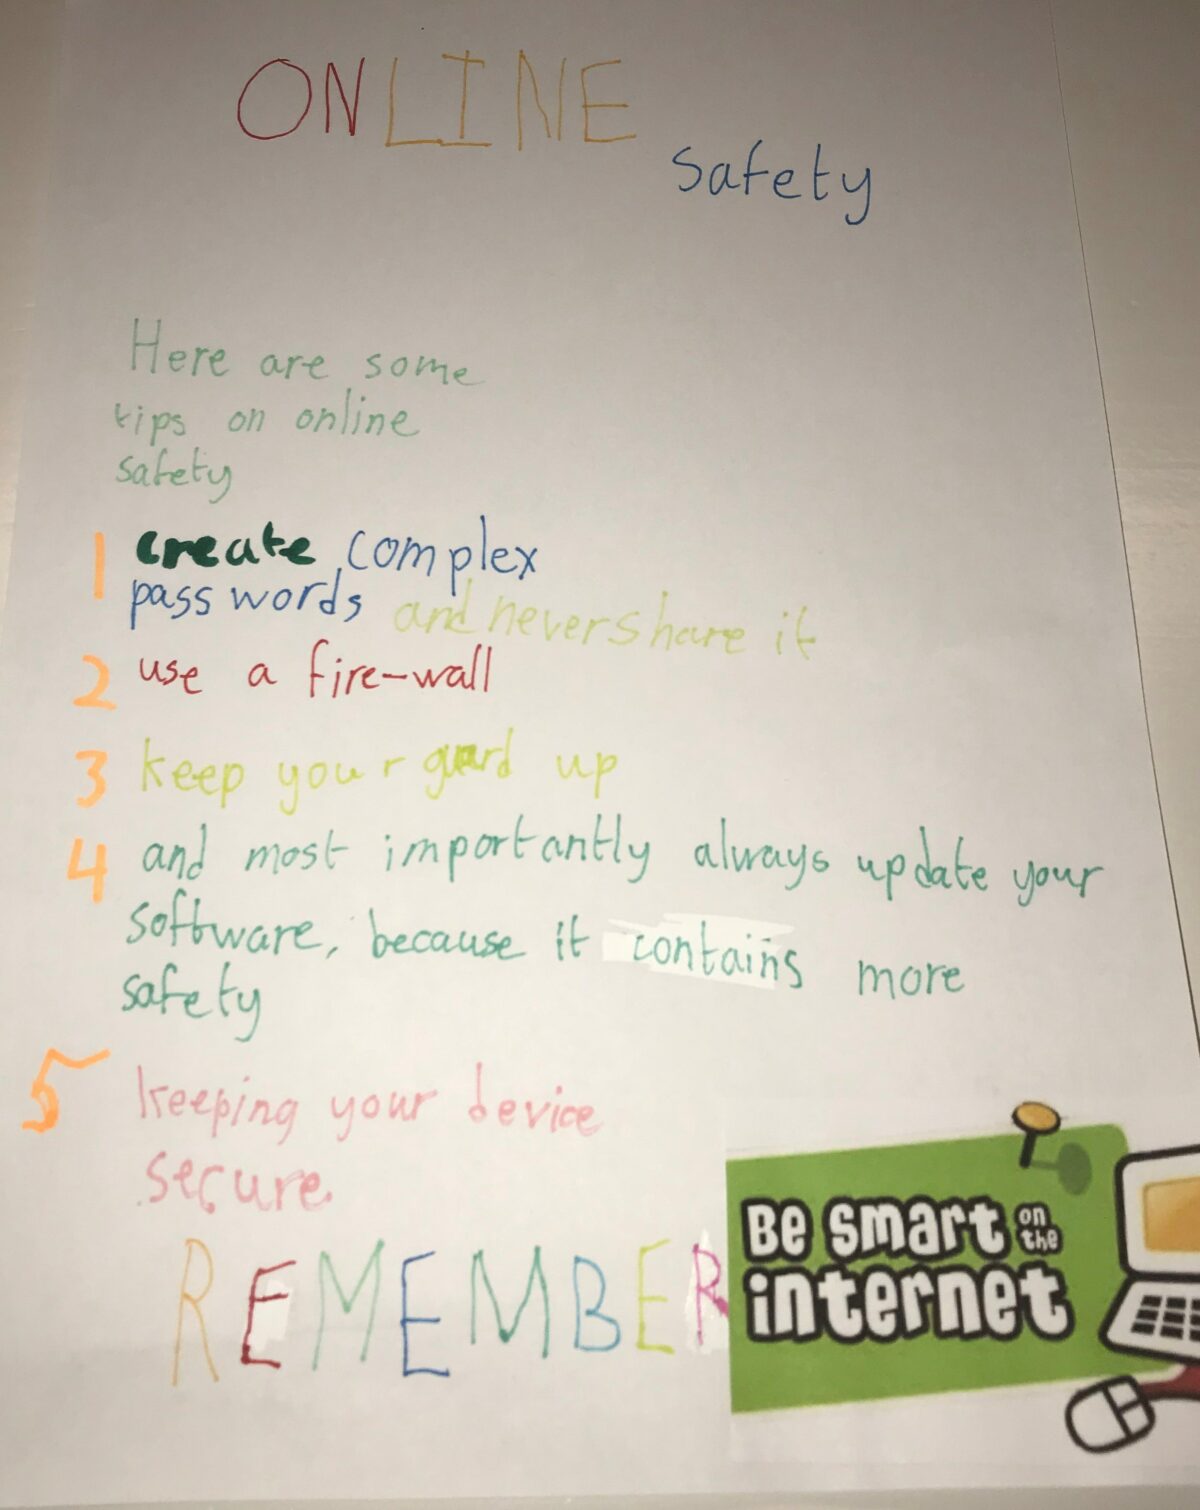 ONLINE
Safety
Here are some
tips on online
safety
1 create complex
passwords and never share it
2 use a fire-wall
3 keep your guard up
4 and most importantly always update your
software, because it contains more
safety
5 keeping your device
secure.
REMEMBER
Be smart on the
internet